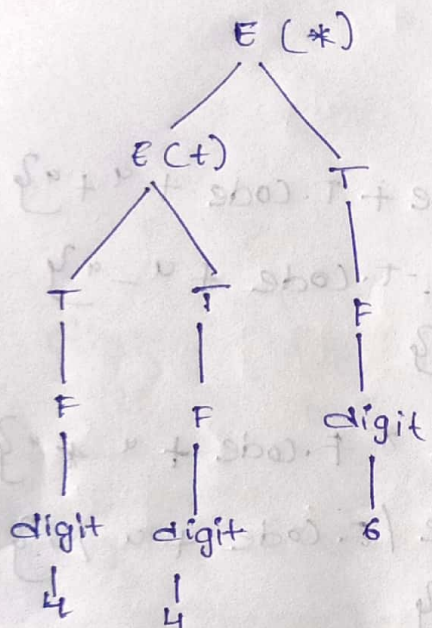 E (*)
E (+) T
T T F
F F digit
digit digit 6
4 4